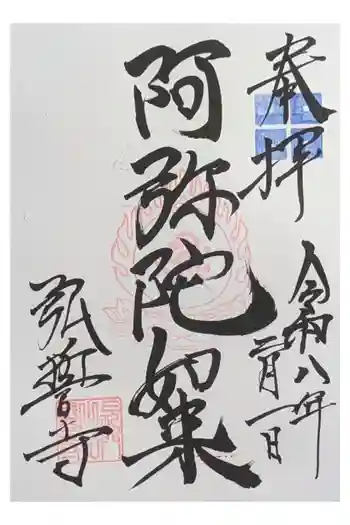 奉拝
令和八年二月一日
阿弥陀如来
弘誓寺